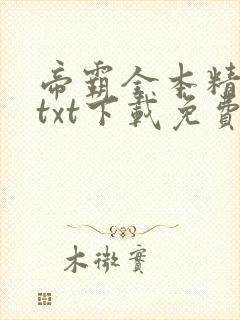 帝霸全本精
txt下載免費
木微實